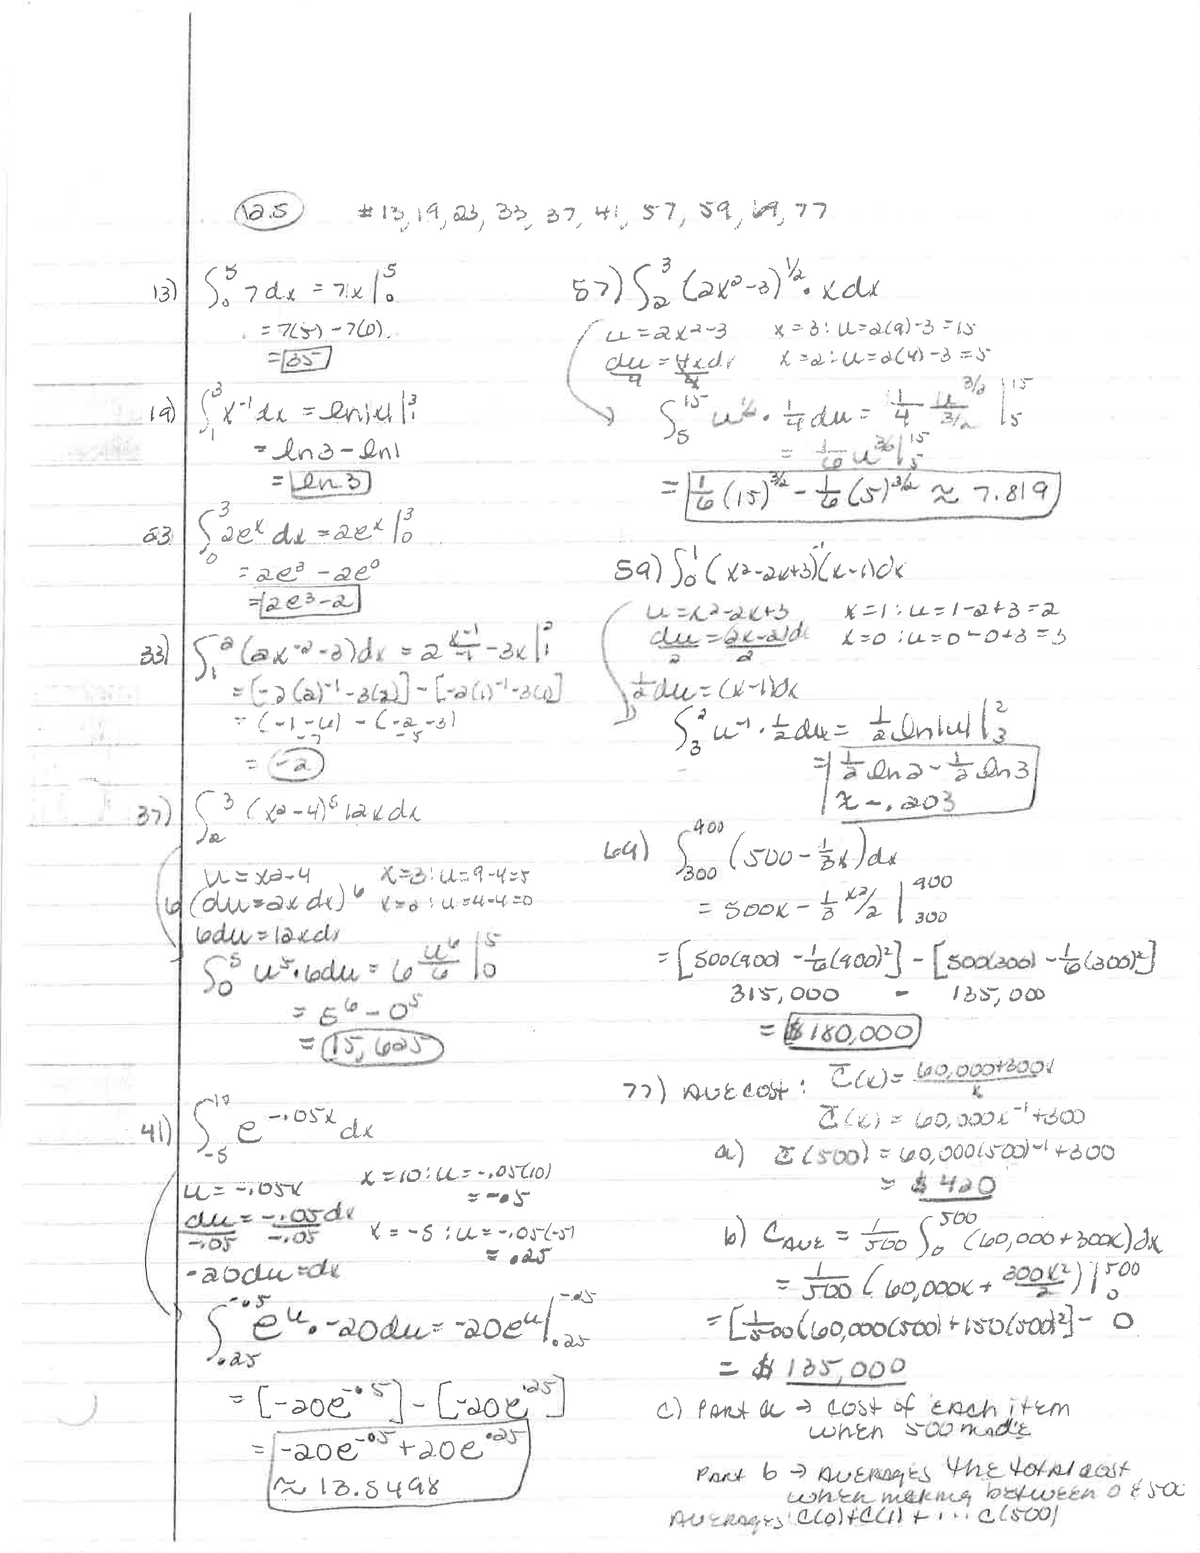 12.5 #13, 19, 23, 33, 37, 41, 57, 59, 69, 77
13) ∫₀⁵ 7dx = 7x |₀⁵
= 7(5) - 7(0)
= 35
19) ∫₁³ x⁻¹dx = ln|x| |₁³
= ln3 - ln1
= ln 3
23 ∫₀³ 2eˣ dx = 2eˣ |₀³
= 2e³ - 2e⁰
= 2e³-2
33) ∫₁² (2x⁻²-3)dx = 2 x⁻¹/-1 - 3x |₁²
= [-2(2)⁻¹-3(2)] - [-2(1)⁻¹-3(1)]
= (-1-6) - (-2-3)
-7 -5
= -2
37) ∫₂³ (x²-4)⁵ 12x dx
u = x²-4 x=3: u=9-4=5
6 (du=2x dx) 6 x=2: u=4-4=0
6du = 12xdx
∫₀⁵ u⁵·6du = 6 u⁶/6 |₀⁵
= 5⁶ - 0⁵
= 15,625
41) ∫₋₅¹⁰ e^(-.05x) dx
x=10: u=-.05(10)
u = -.05x = -.5
du/-.05 = -.05dx/-.05 x=-5: u=-.05(-5)
= .25
-20du=dx
∫.₂₅^(-.5) eᵘ·-20du = -20eᵘ |.₂₅^(-.5)
= [-20e^(-.5)] - [-20e^(.25)]
= -20e^(-.5) + 20e^(.25)
≈ 13.5498
57) ∫₂³ (2x²-3)^(1/2) · x dx
u=2x²-3 x=3: u=2(9)-3=15
du/4 = 4xdx/4 x=2: u=2(4)-3=5
∫₅¹⁵ u^(1/2) · 1/4 du = 1/4 u^(3/2)/(3/2) |₅¹⁵
= 1/6 u^(3/2) |₅¹⁵
= 1/6 (15)^(3/2) - 1/6 (5)^(3/2) ≈ 7.819
59) ∫₀¹ (x²-2x+3)⁻¹(x-1)dx
u=x²-2x+3 x=1: u=1-2+3=2
du/2 = (2x-2)dx/2 x=0: u=0-0+3=3
1/2 du = (x-1)dx
∫₃² u⁻¹ · 1/2 du = 1/2 ln|u| |₃²
= 1/2 ln2 - 1/2 ln3
≈ -.203
69) ∫₃₀₀⁴⁰⁰ (500 - 1/3 x)dx
= 500x - 1/3 x²/2 |₃₀₀⁹⁰⁰
= [500(900) - 1/6 (900)²] - [500(300) - 1/6 (300)²]
315,000 - 135,000
= $180,000
77) AVE COST: C̄(x) = 60,000+300x/x
C̄(x) = 60,000x⁻¹+300
a) C̄(500) = 60,000(500)⁻¹+300
= $420
b) C_AVE = 1/500 ∫₀⁵⁰⁰ (60,000+300x)dx
= 1/500 (60,000x + 300x²/2) |₀⁵⁰⁰
= [1/500 (60,000(500)+150(500)²] - 0
= $ 135,000
c) Part a → cost of each item
when 500 made
Part b → Averages the total cost
when making between 0 & 500
Averages C(0)+C(1)+... C(500)